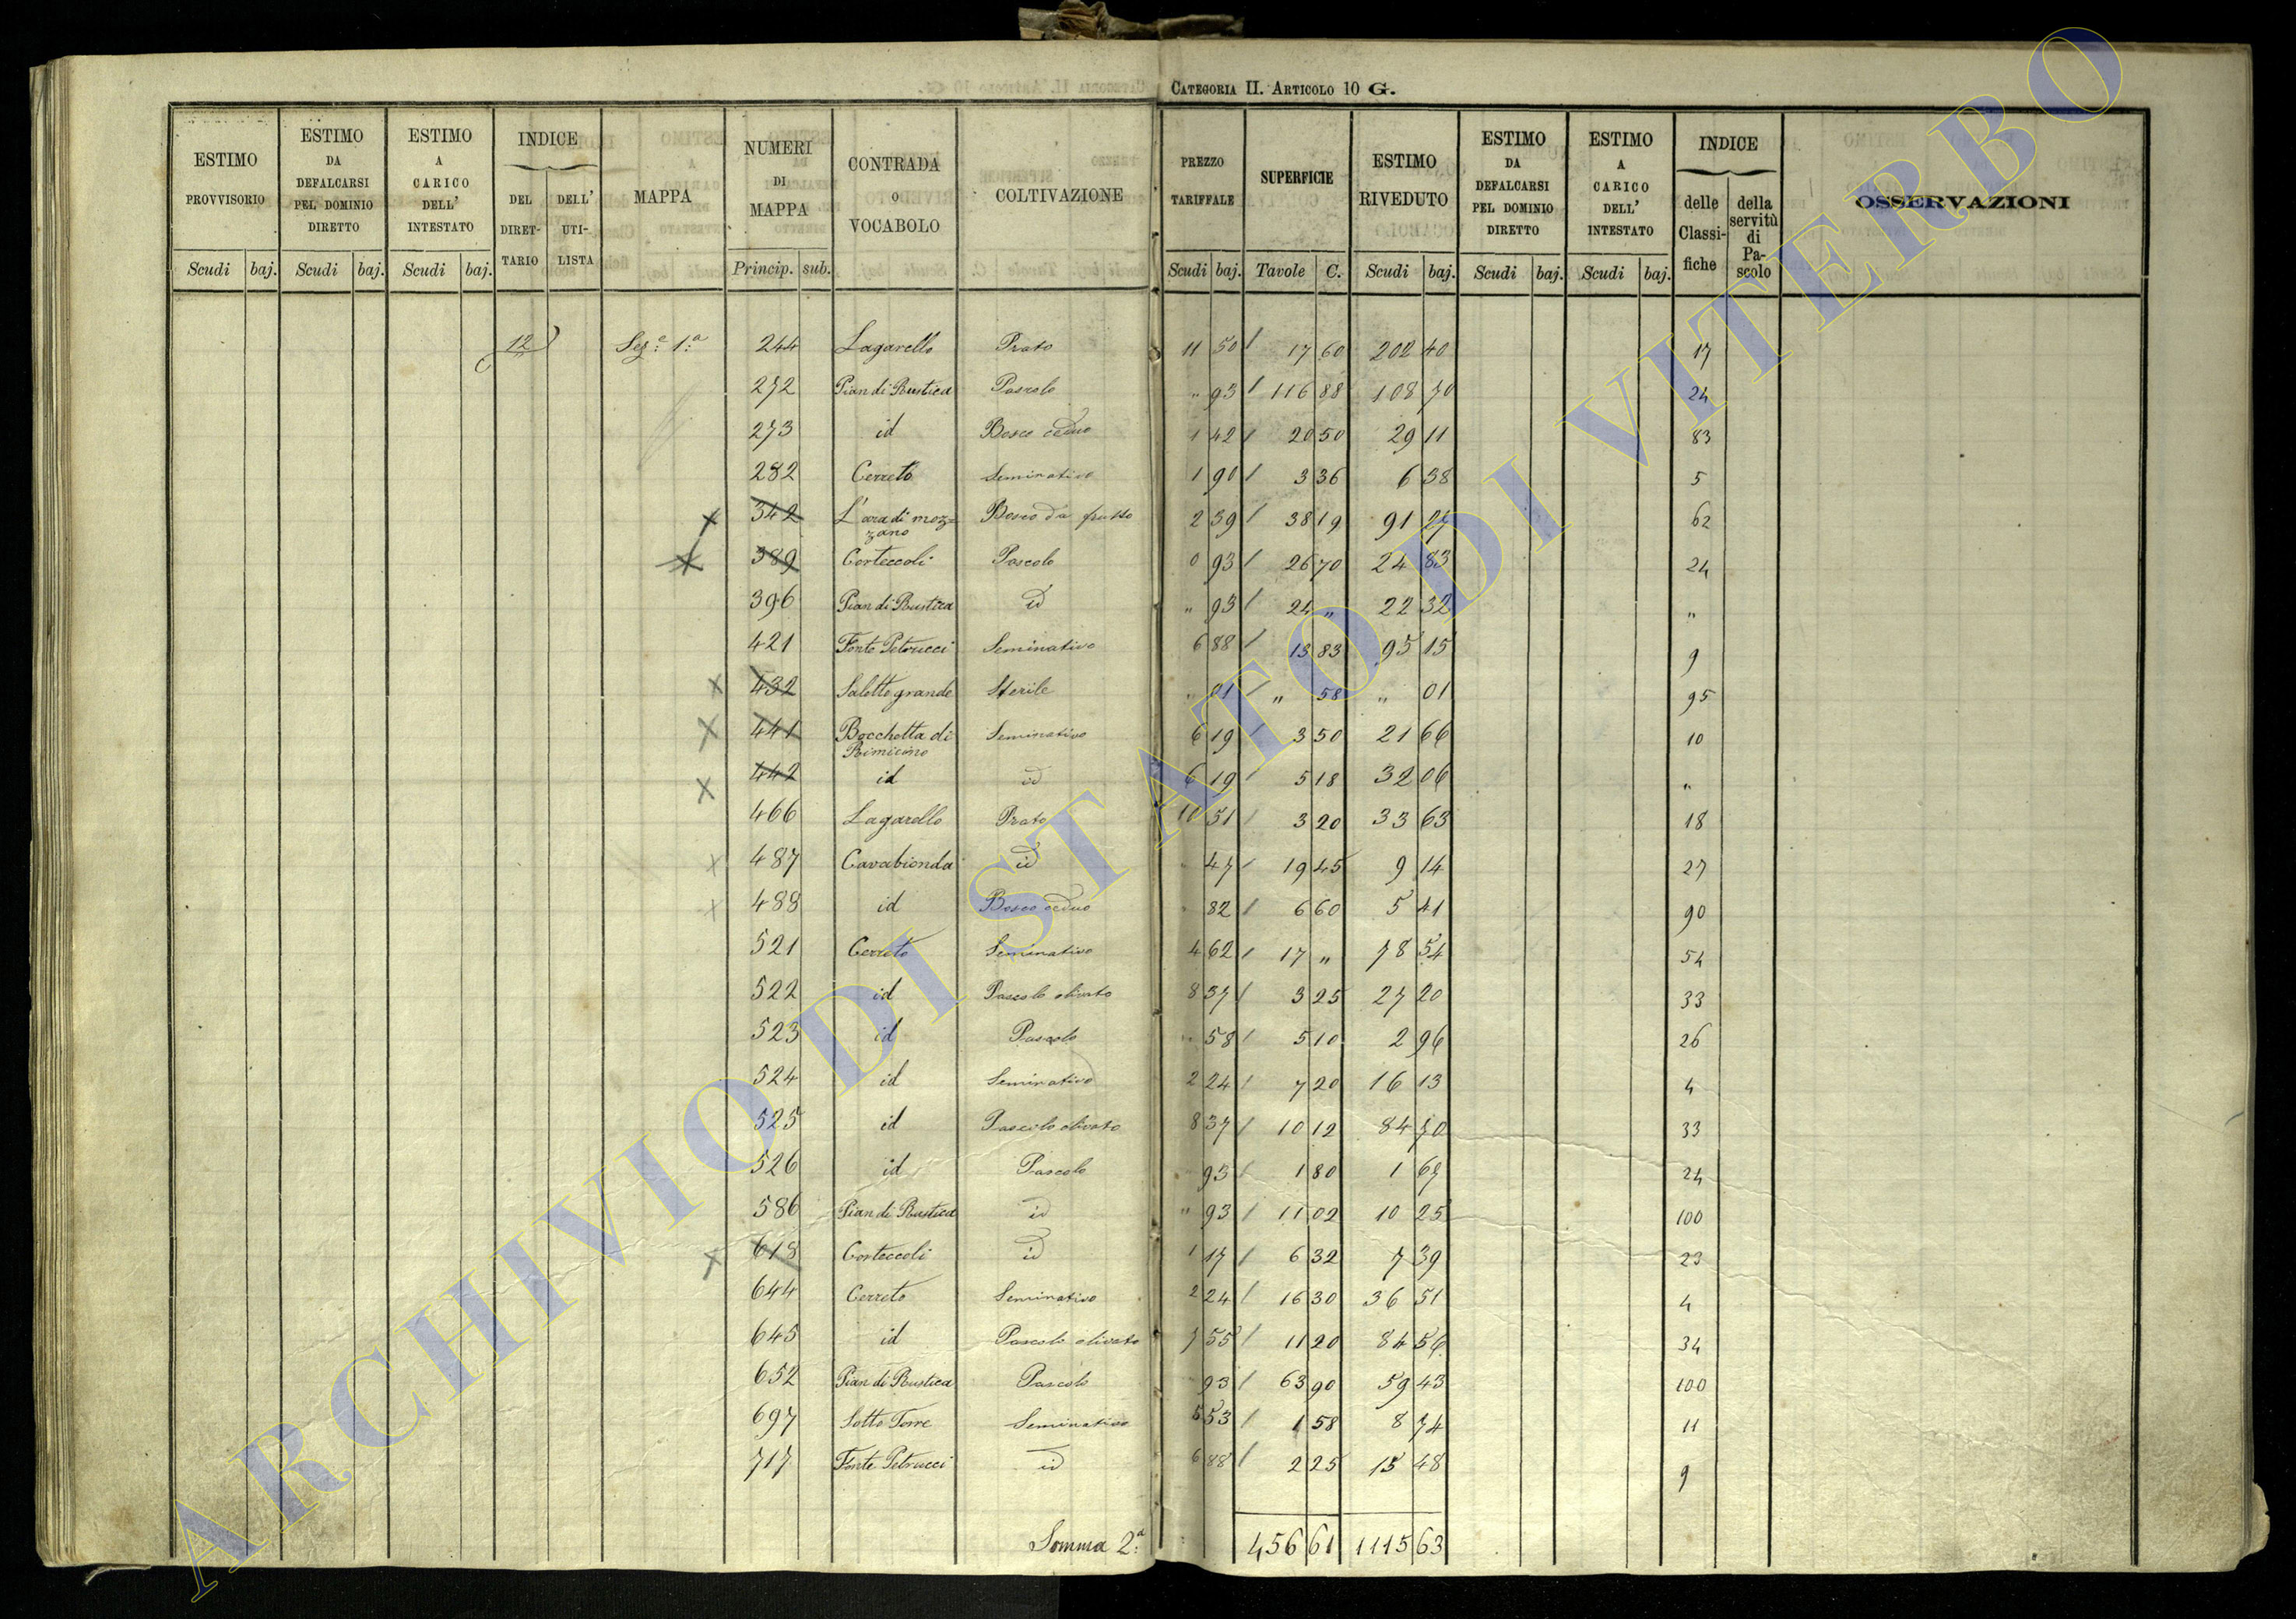 CATEGORIA II. ARTICOLO 10 G.
ESTIMO PROVVISORIO Scudi baj.
ESTIMO DA DEFALCARSI PEL DOMINIO DIRETTO Scudi baj.
ESTIMO A CARICO DELL' INTESTATO Scudi baj.
INDICE DEL DIRET-TARIO DELL' UTI-LISTA
MAPPA
NUMERI DI MAPPA Princip. sub.
CONTRADA o VOCABOLO
COLTIVAZIONE
PREZZO TARIFFALE Scudi baj.
SUPERFICIE Tavole C.
ESTIMO RIVEDUTO Scudi baj.
ESTIMO DA DEFALCARSI PEL DOMINIO DIRETTO Scudi baj.
ESTIMO A CARICO DELL' INTESTATO Scudi baj.
INDICE delle Classi-fiche della servitù di Pa-scolo
OSSERVAZIONI
12 Sez.e 1.a 244 Lagarello Prato 11 50 17 60 202 40 17
272 Pian di Rustica Pascolo " 93 116 88 108 70 24
273 id Bosco ceduo 1 42 20 50 29 11 83
282 Cerreto Seminativo 1 90 3 36 6 38 5
342 L'ara di moz=zano Bosco da frutto 2 39 38 19 91 27 62
389 Corteccoli Pascolo 0 93 26 70 24 83 24
396 Pian di Rustica id " 93 24 " 22 32 "
421 Fonte Petrucci Seminativo 6 88 13 83 95 15 9
432 Saletto grande Sterile " 01 " 58 " 01 95
441 Bocchetta di Rimicino Seminativo 6 19 3 50 21 66 10
442 id id 6 19 5 18 32 06 "
466 Lagarello Prato 10 51 3 20 33 63 18
487 Cavabionda id 47 19 45 9 14 27
488 id Bosco ceduo 82 6 60 5 41 90
521 Cerreto Seminativo 4 62 17 " 78 54 54
522 id Pascolo olivato 8 37 3 25 27 20 33
523 id Pascolo " 58 5 10 2 96 26
524 id Seminativo 2 24 7 20 16 13 4
525 id Pascolo olivato 8 37 10 12 84 70 33
526 id Pascolo 93 1 80 1 67 24
586 Pian di Rustica id " 93 11 02 10 25 100
618 Corteccoli id 1 17 6 32 7 39 23
644 Cerreto Seminativo 2 24 16 30 36 51 4
645 id Pascolo olivato 7 55 11 20 84 56 34
652 Pian di Rustica Pascolo 93 63 90 59 43 100
697 Sotto Torre Seminativo 5 53 1 58 8 74 11
717 Fonte Petrucci id 6 88 2 25 15 48 9
Somma 2.a 456 61 1115 63
ARCHIVIO DI STATO DI VITERBO